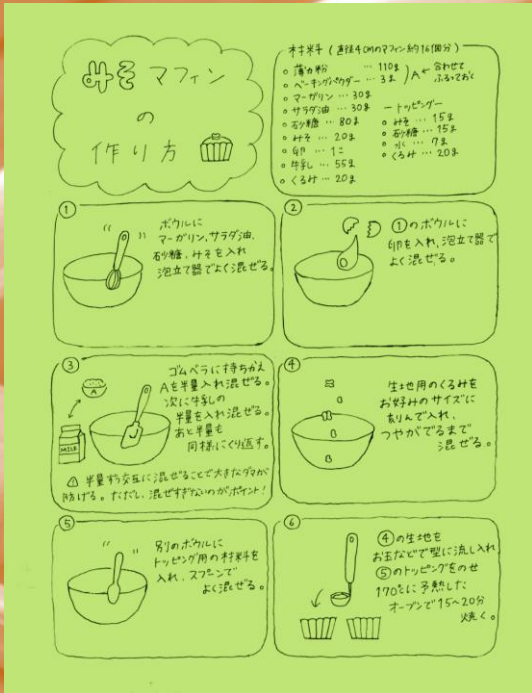 みそマフィン
の
作り方
材料 (直径4cmのマフィン約16個分)
○ 薄力粉 … 110g
○ ベーキングパウダー … 3g
A← 合わせて
ふるっておく
○ マーガリン … 30g
○ サラダ油 … 30g
○ 砂糖 … 80g
○ みそ … 20g
○ 卵 … 1コ
○ 牛乳 … 55g
○ くるみ … 20g
ートッピングー
○ みそ … 15g
○ 砂糖 … 15g
○ 水 … 7g
○ くるみ … 20g
①
ボウルに
マーガリン、サラダ油、
砂糖、みそを入れ
泡立て器でよく混ぜる。
②
①のボウルに
卵を入れ、泡立て器で
よく混ぜる。
③
ゴムベラに持ちかえ
Aを半量入れ混ぜる。
次に牛乳の
半量を入れ混ぜる。
あと半量も
同様にくり返す。
A
MILK
⚠ 半量ずつ交互に混ぜることで大きなダマが
防げる。ただし、混ぜすぎないのがポイント!
④
生地用のくるみを
お好みのサイズに
刻んで入れ、
つやがでるまで
混ぜる。
⑤
別のボウルに
トッピング用の材料を
入れ、スプーンで
よく混ぜる。
⑥
④の生地を
お玉などで型に流し入れ、
⑤のトッピングをのせ
170℃に予熱した
オーブンで15~20分
焼く。